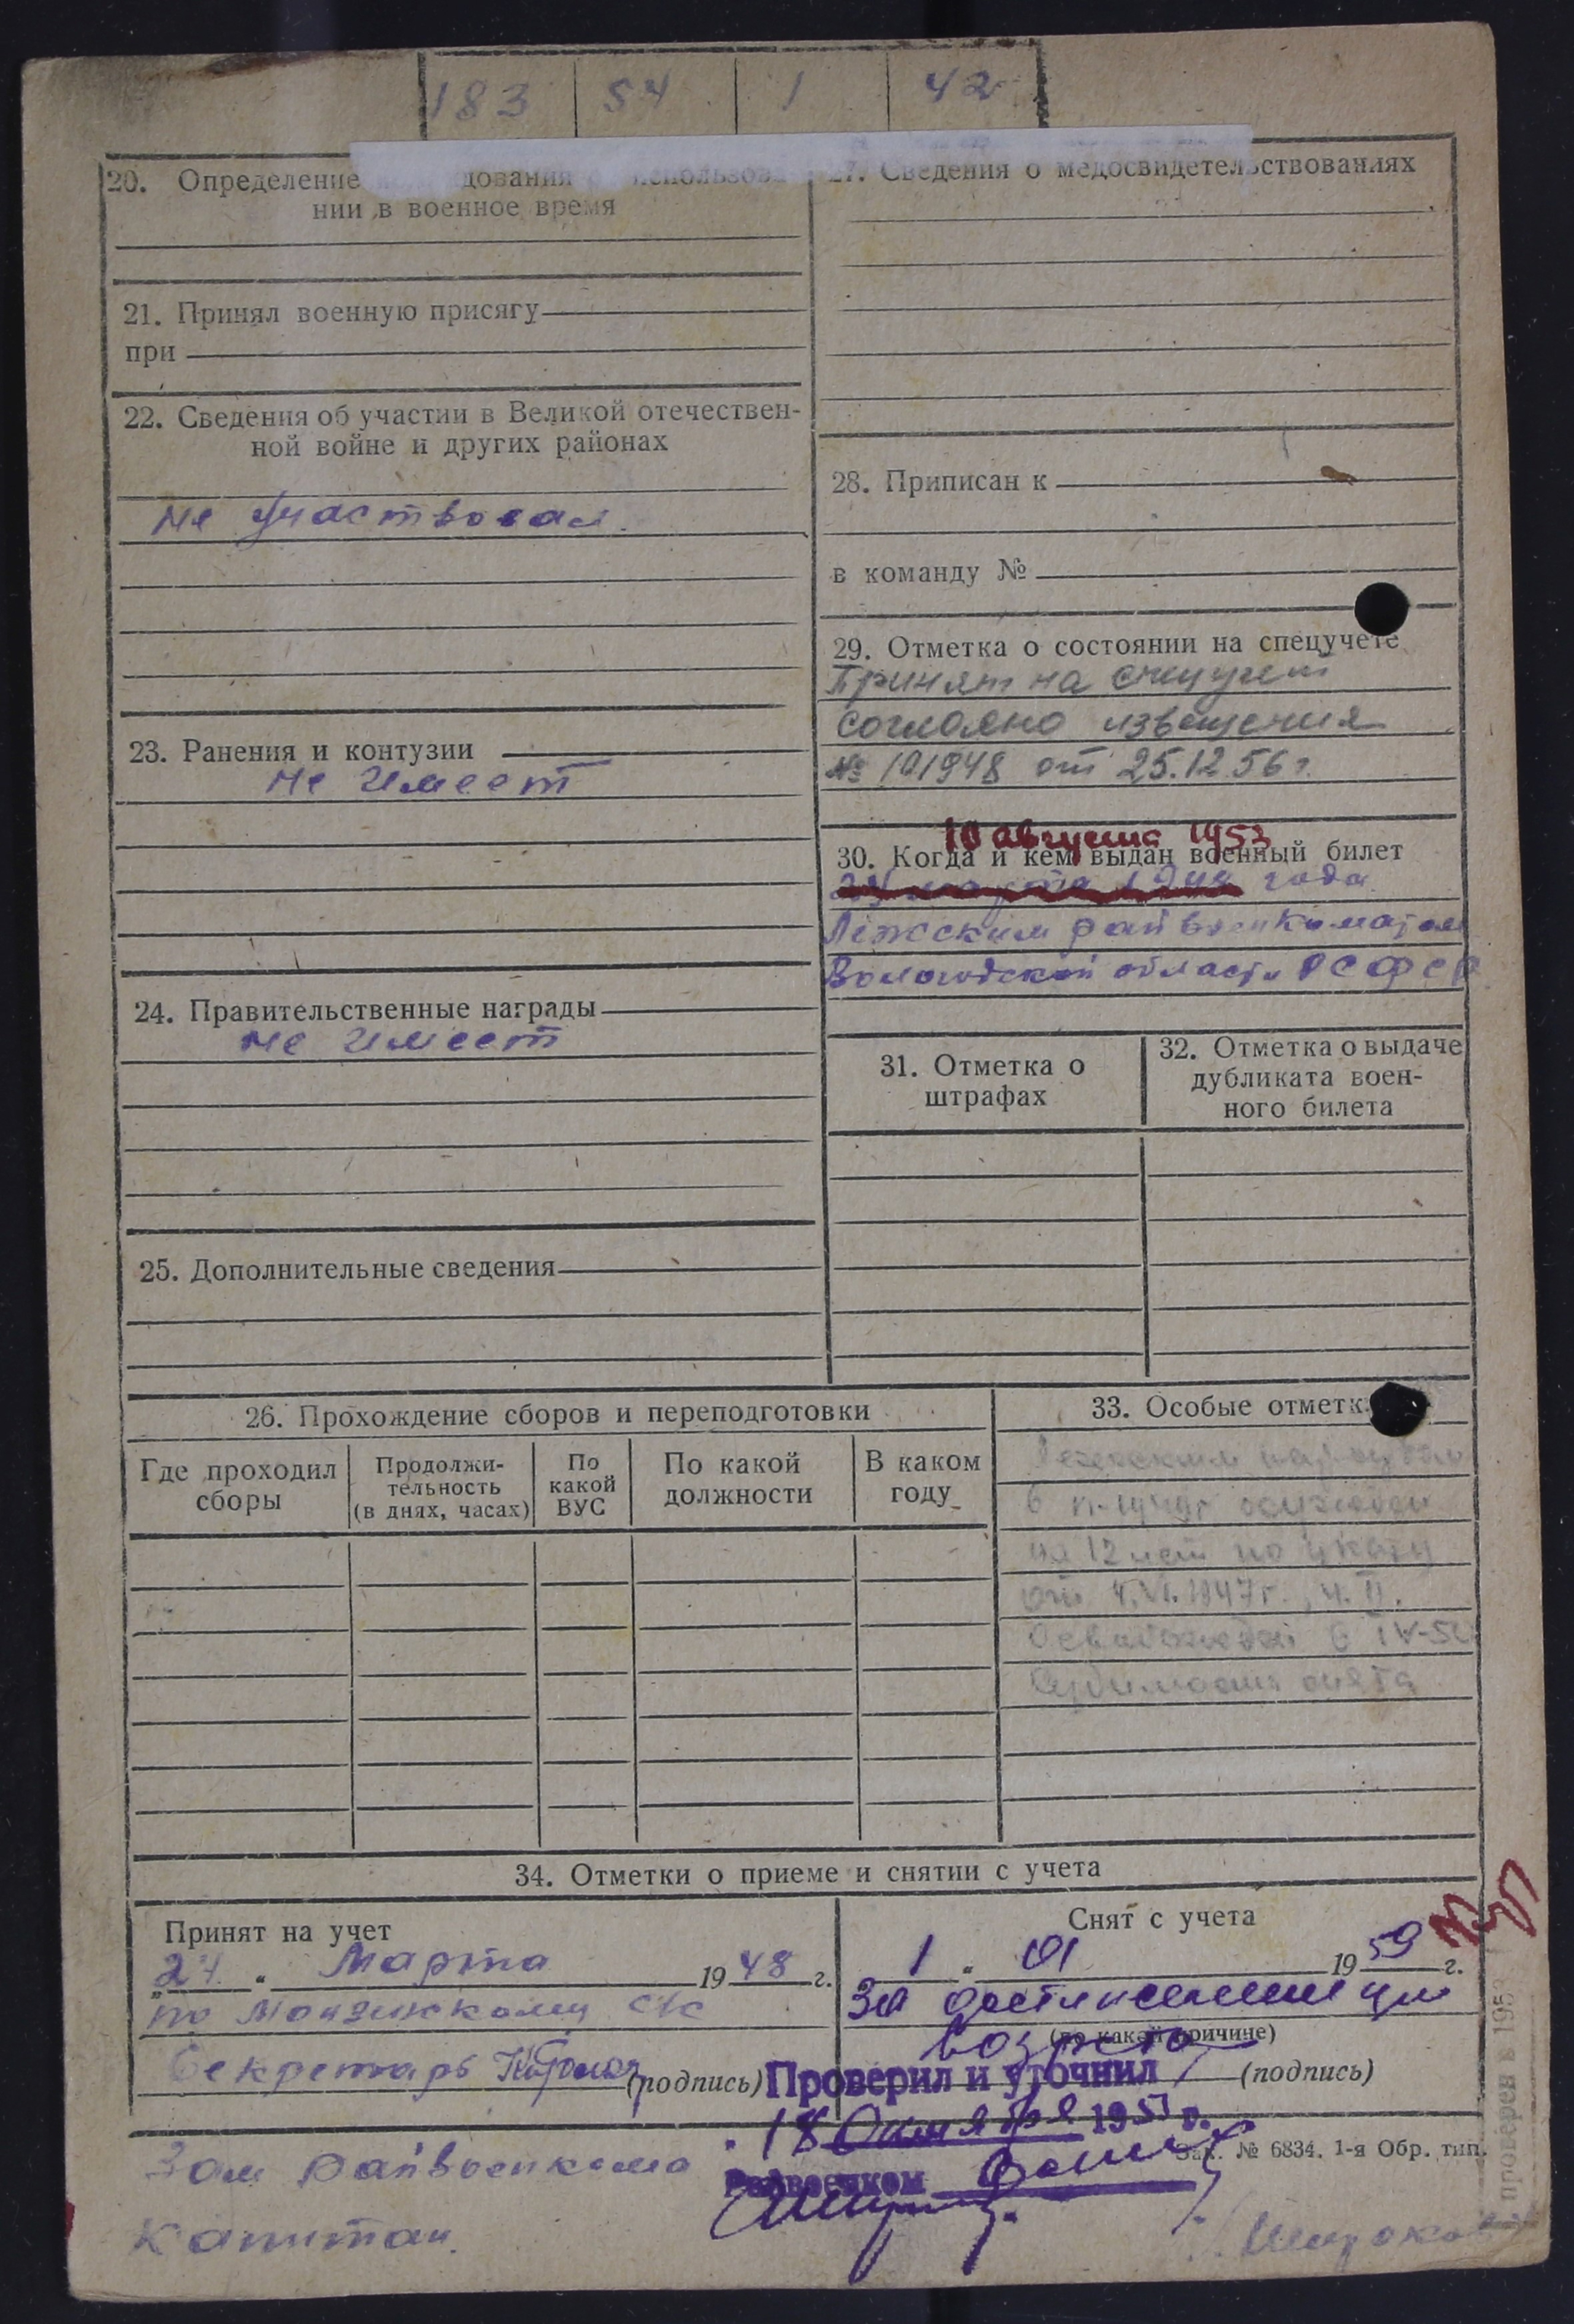 183 54 1 42
20. Определение
нии в военное время
21. Принял военную присягу
при
22. Сведения об участии в Великой отечествен-
ной войне и других районах
не участвовал.
23. Ранения и контузии
не имеет
24. Правительственные награды
не имеет
25. Дополнительные сведения
27. Сведения о медосвидетельствованиях
28. Приписан к
в команду №
29. Отметка о состоянии на спецучете
Принят на спецучет
согласно извещения
№ 101948 от 25.12.56 г.
10 августа 1953
30. Когда и кем выдан военный билет
24 марта 1948 года
Лежским райвоенкоматом
Вологодской области РСФСР
31. Отметка о
штрафах
32. Отметка о выдаче
дубликата воен-
ного билета
26. Прохождение сборов и переподготовки
Где проходил
сборы
Продолжи-
тельность
(в днях, часах)
По
какой
ВУС
По какой
должности
В каком
году
33. Особые отметк
Лежским нарсудом
осужден
на 12 лет по указу
от 4.VI.1947г., ч. II.
Освобожден в IV-5
Судимость снята
34. Отметки о приеме и снятии с учета
Принят на учет
„24 “ Марта 1948 г.
по с/с
Секретарь
(подпись)
Зам Райвоенкома
Капитан
Снят с учета
1 “ 01 1959 г.
За достижением
возраста
(по какой причине)
(подпись)
Проверил и уточнил
18 Октября 1951 г.
Райвоенком
Зак. № 6834. 1-я Обр. тип.
проверен в 195